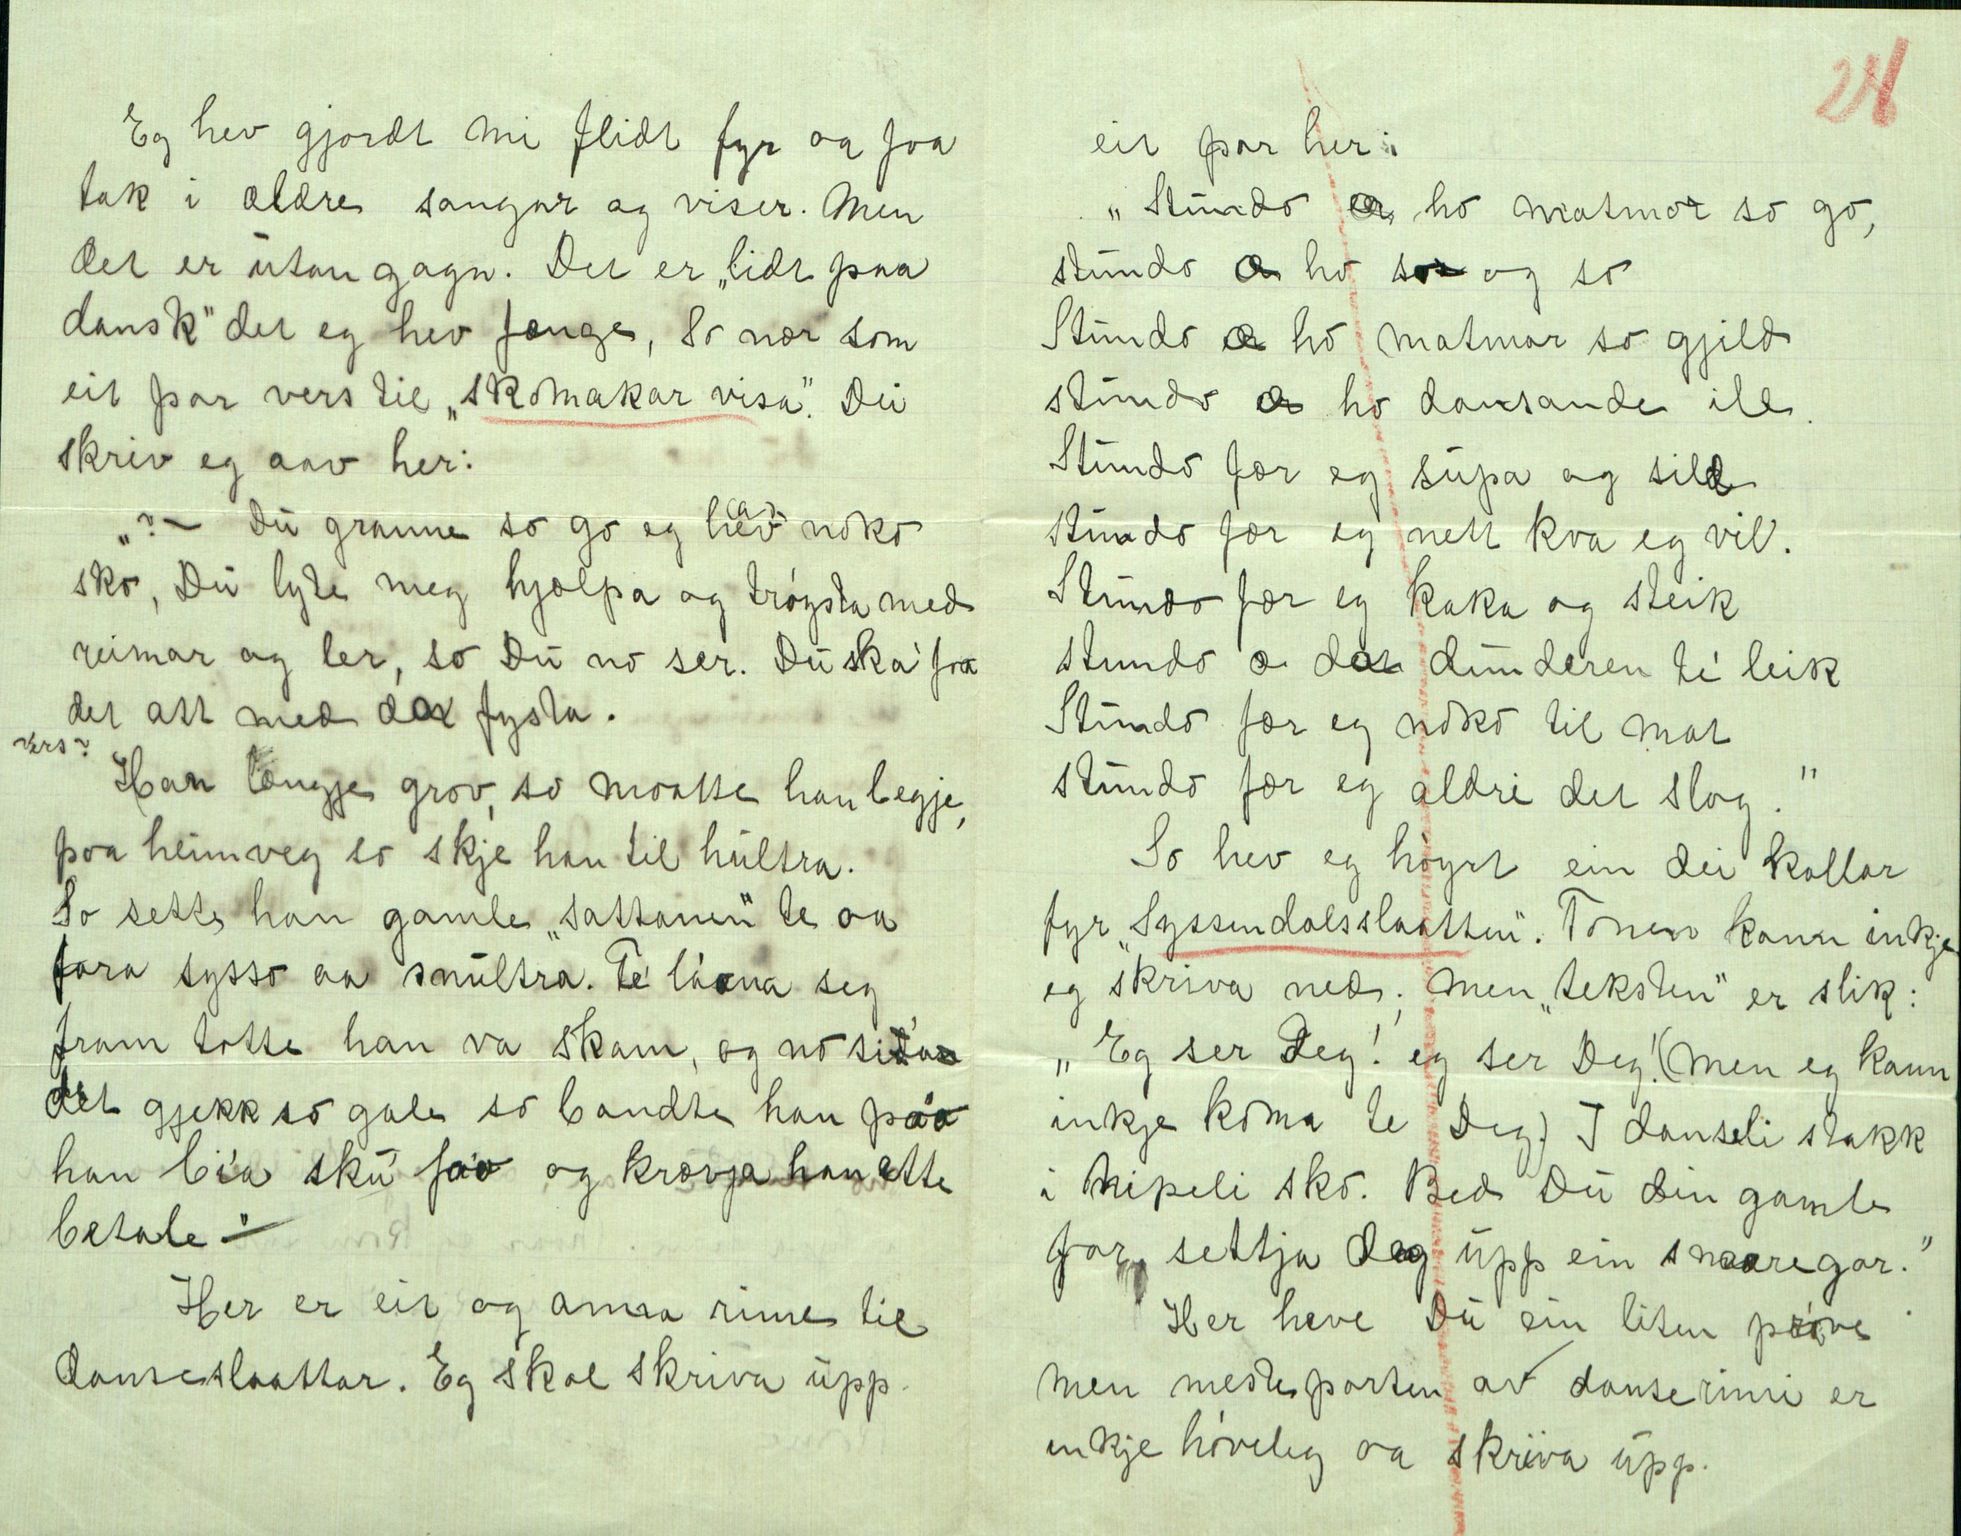 Eg hev gjordt mi flidt fyr aa faa
tak i ældre sangar og viser. Men
det er ütan gagn. Det er „lidt paa
dansk" det eg hev fenge, So nær som
eit par vers til „skomakar visa". Dei
skriv eg aav her:
„?— Dü granne so go eg hev (ha) noko
sko, Dü lyte meg hjælpa og trøysta med
reimar og ler, so Dü no ser. Dü ska' faa
det att med det fysta.
vers?
Han længje grov, so maatte han legje,
paa heimveg so skje han til hültra.
So sette han gamle „sattanen" te aa
fara sysso aa snültra. Te' låana seg
fram totte han va skam, og no sidan
det gjekk so gale so bandte han paa
han bi'a skü faa og krævja han ette
betale"—
Her er eit og anna rime til
danseslaattar. Eg skal skriva üpp
24
eit par her:
„Stündo æ ho matmor so go,
stündo æ ho so og so
Stündo æ ho matmor so gjild
stündo æ ho dansande ill.
Stündo fær eg süpa og sild
stündo fær eg nett kva eg vil.
Stündo fær eg kaka og steik
stundo æ dæ dünderen te' leik
Stündo fær eg noko til mat
stündo fær eg aldri det slag."
So hev eg høyrt ein dei kallar
fyr „Syssendalsslaatten". Tonen kann inkje
eg skriva ned; men „teksten" er slik:
„Eg ser Deg! eg ser Deg! (men eg kann
inkje koma te Deg) I danseli stakk
i nipeli sko. Bed Dü din gamle
far, settja deg üpp ein snaregar."
Her heve Dü ein liten prøve
men mesteparten av danserimi er
inkje høveleg aa skriva üpp.